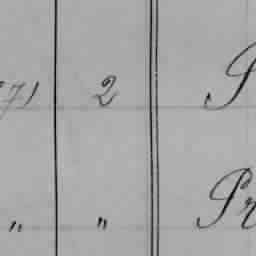 71 2 S
" " Pr